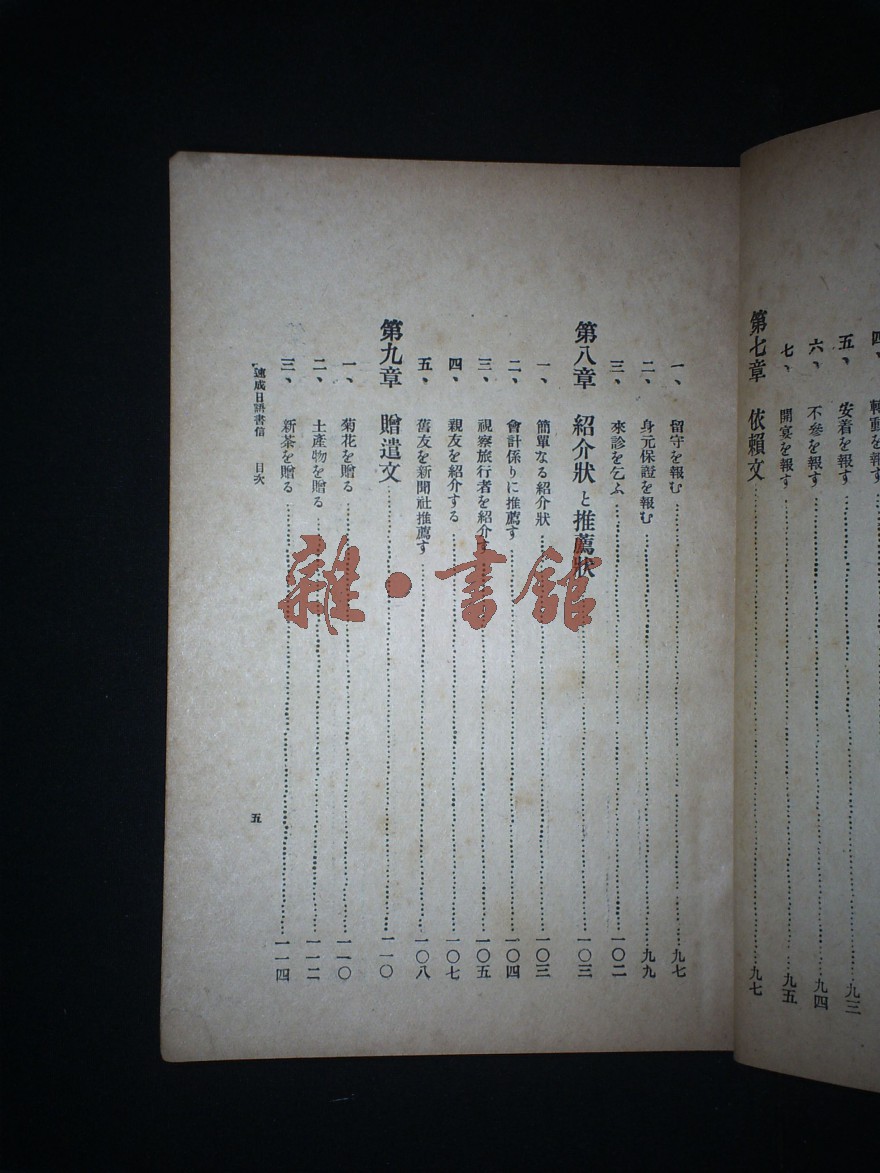 四、 轉勤を報す
五、 安着を報す……九三
六、 不參を報す……九四
七、 開宴を報す……九五
第七章 依賴文……九七
一、 留守を報む……九七
二、 身元保證を報む……九九
三、 來診を乞ふ……一〇二
第八章 紹介狀と推薦狀……一〇三
一、 簡單なる紹介狀……一〇三
二、 會計係りに推薦す……一〇四
三、 視察旅行者を紹介す……一〇五
四、 親友を紹介する……一〇七
五、 舊友を新聞社推薦す……一〇八
第九章 贈遣文……一一〇
一、 菊花を贈る……一一〇
二、 土產物を贈る……一一二
三、 新茶を贈る……一一四
速成日語書信 目次 五
雜·書館